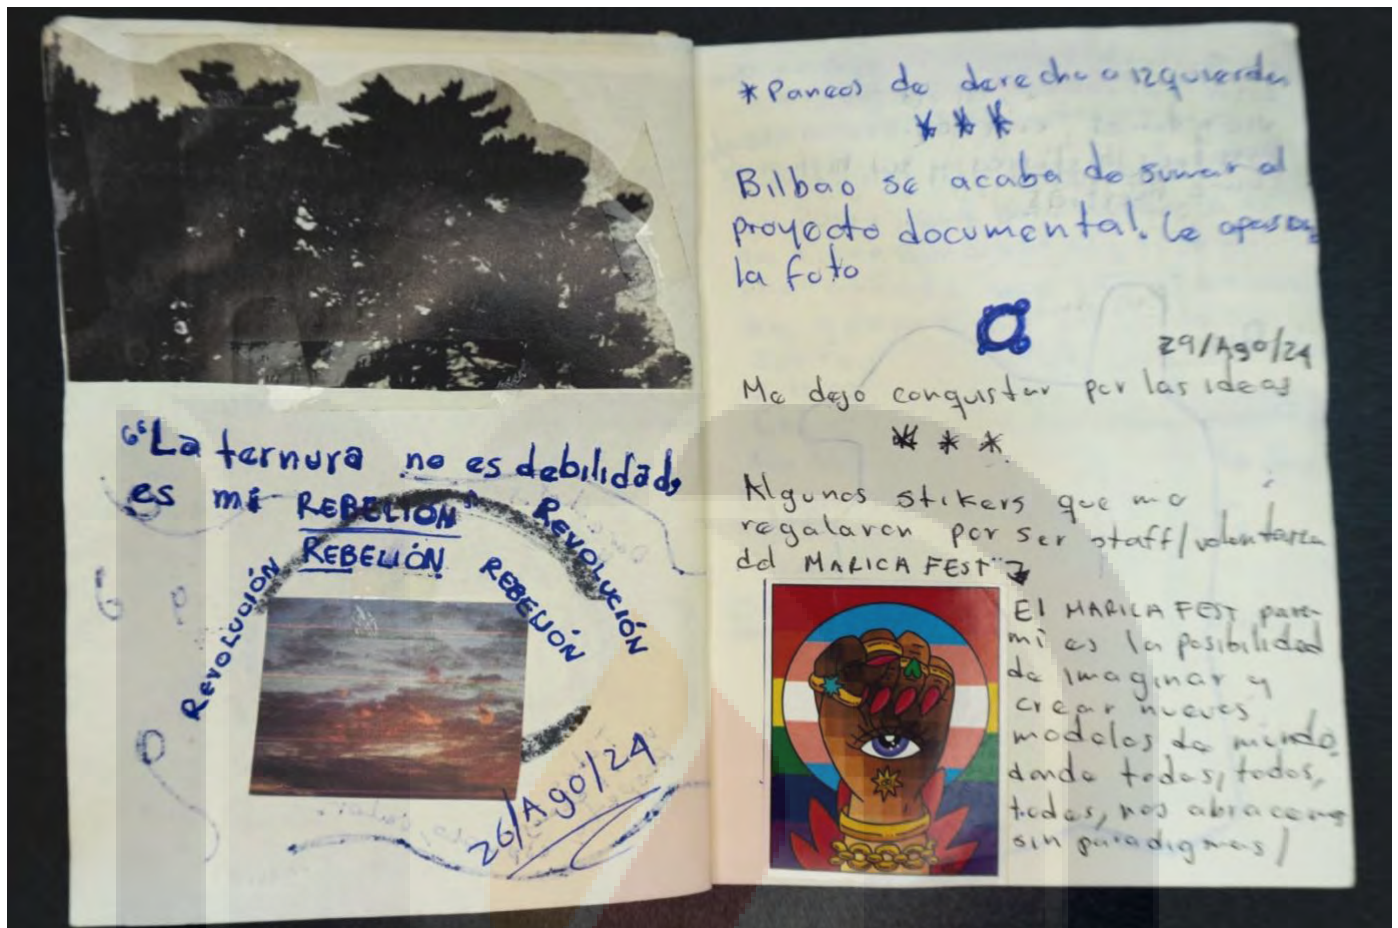 “La ternura no es debilidad,
es mi REBELIÓN”
REBELIÓN
REVOLUCIÓN
REBELIÓN
REVOLUCIÓN
26/Ago/24
*Paneos de derecha a izquierda
***
Bilbao se acaba de sumar al
proyecto documental. Le apasiona
la foto
29/Ago/24
Me dejo conquistar por las ideas
***
Algunos stikers que me
regalaron por ser staff/voluntaria
del MARICA FEST
El MARICA FEST para
mi es la posibilidad
de imaginar y
crear nuevos
modelos de mundo,
donde todas, todos,
todes, nos abracemos
sin paradigmas/